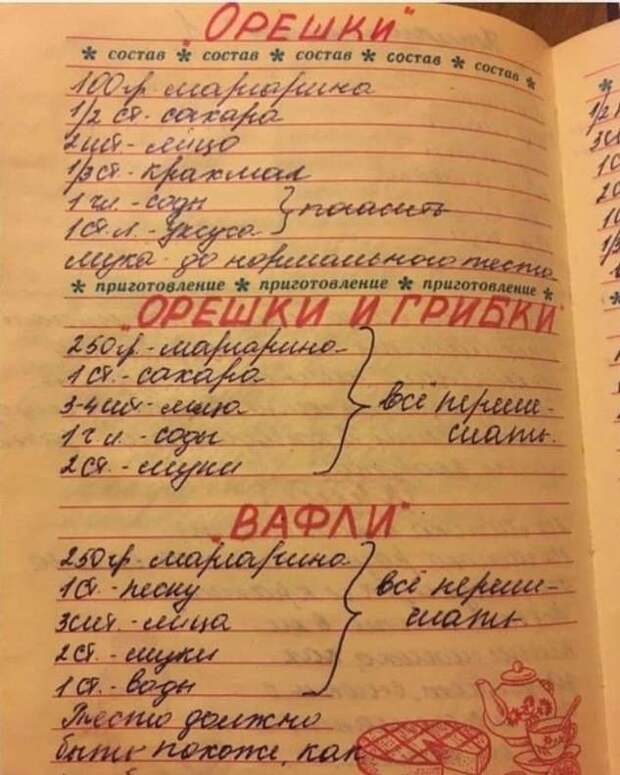 "ОРЕШКИ"
* состав * состав * состав * состав * состав *
100гр. маргарина
1/2 ст. - сахара
2 шт. - яйцо
1/3 ст. - крахмал
1 ч.л. - соды } погасить
1 ст. л. - уксуса
мука - до нормального теста
* приготовление * приготовление * приготовление *
"ОРЕШКИ И ГРИБКИ"
250 гр. - маргарина
1 ст. - сахара
3-4 шт. - яйца } всё переме-
1 ч л. - соды шать.
2 ст. - муки
"ВАФЛИ"
250 гр. маргарина
1 ст. - песку } всё переме-
3 шт. - яйца шать
2 ст. - муки
1 ст. - воды
Тесто должно
быть похоже, как
1/2
1/3